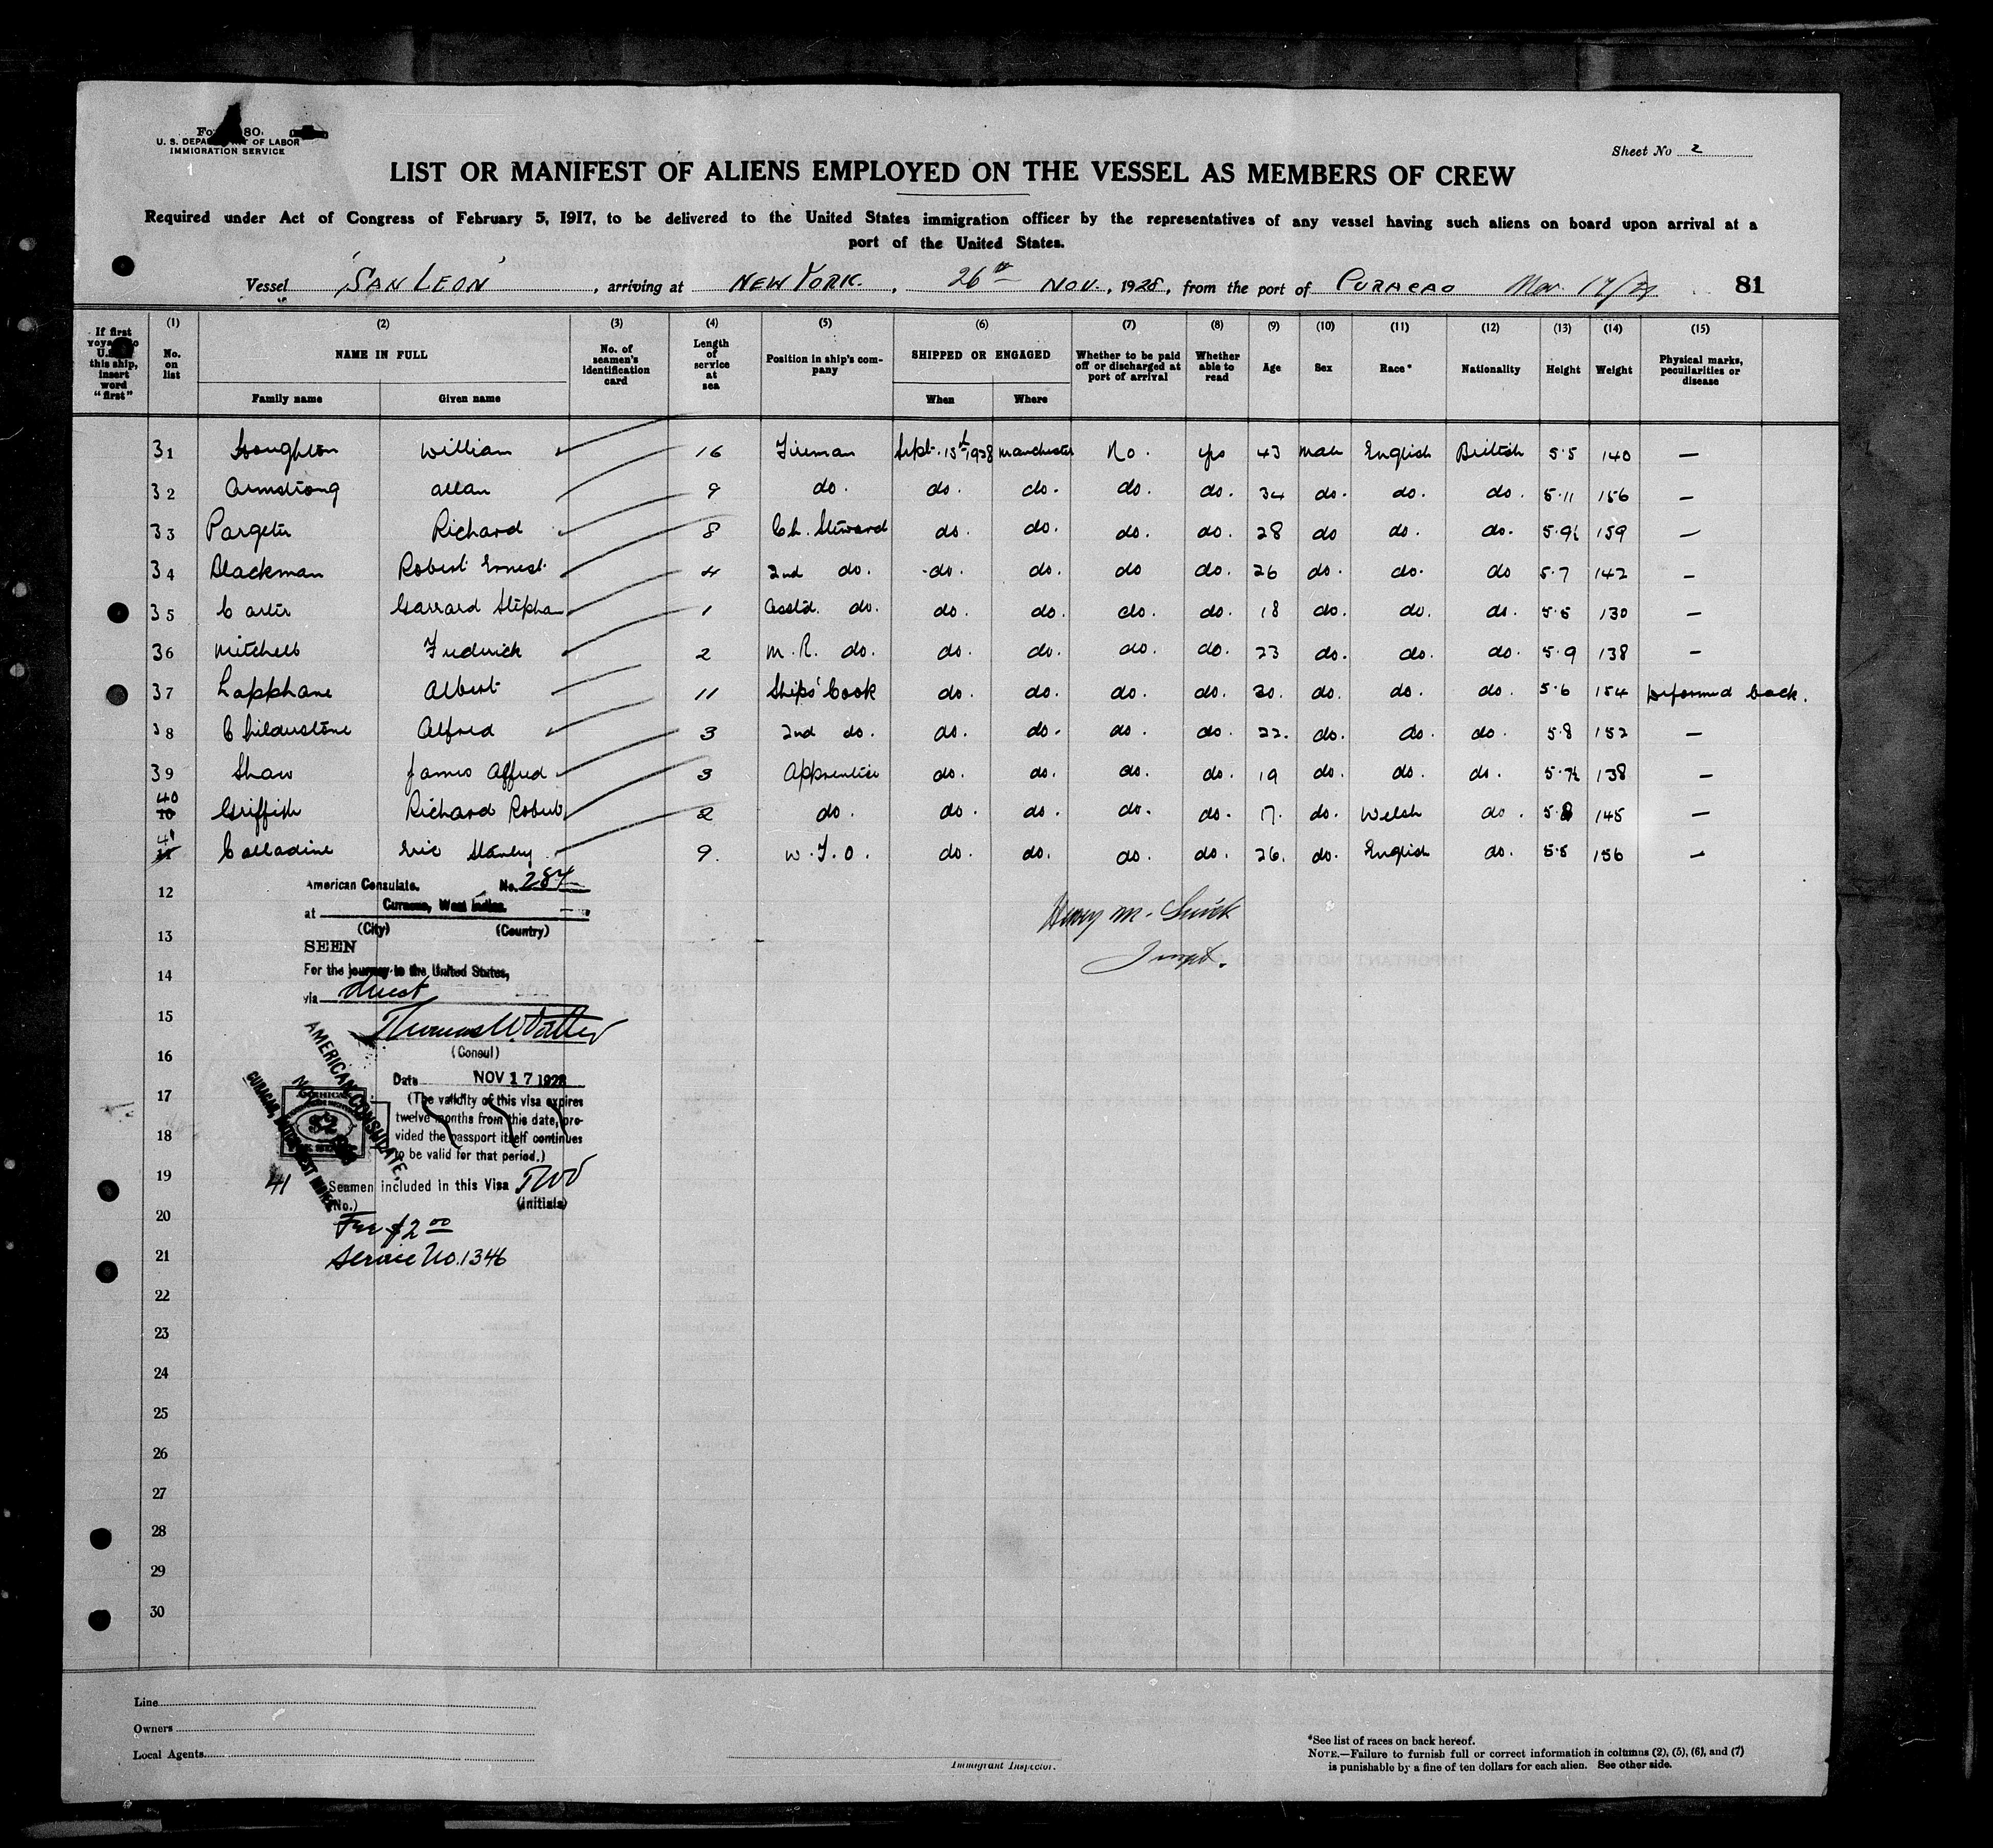 U. S. DEPARTMENT OF LABOR
IMMIGRATION SERVICE
Sheet No 2
LIST OR MANIFEST OF ALIENS EMPLOYED ON THE VESSEL AS MEMBERS OF CREW
Required under Act of Congress of February 5, 1917, to be delivered to the United States immigration officer by the representatives of any vessel having such aliens on board upon arrival at a
port of the United States.
Vessel 'SAN LEON', arriving at NEW YORK., 26th NOV., 1928, from the port of CURACAO Nov. 17/28 81
If first voyage to U.S. on this ship, insert word "first" (1) No. on list (2) NAME IN FULL Family name Given name (3) No. of seamen's identification card (4) Length of service at sea (5) Position in ship's company (6) SHIPPED OR ENGAGED When Where (7) Whether to be paid off or discharged at port of arrival (8) Whether able to read (9) Age (10) Sex (11) Race* (12) Nationality (13) Height (14) Weight (15) Physical marks, peculiarities or disease
31 Houghton William 16 Fireman Sept. 15th 1928 Manchester No. yes 43 Male English British 5·5 140 —
32 Armstrong Allan 9 do. do. do. do. do. 34 do. do. do. 5·11 156 —
33 Pargeter Richard 8 Ch. Steward do. do. do. do. 28 do do. do. 5·9½ 159 —
34 Blackman Robert Ernest 4 2nd do. do. do. do do. 26 do. do. do 5·7 142 —
35 Carter Garrard Stephan 1 Asstd. do. do. do. do. do. 18 do. do. do. 5·5 130 —
36 Mitchell Frederick 2 M.R. do. do. do. do. do. 23 do. do. do. 5·9 138 —
37 Lapphane Albert 11 Ships' Cook do. do. do. do. 30. do. do. do. 5·6 154 Deformed back.
38 Childerstone Alfred 3 2nd do. do. do. do. do. 22. do. do. do. 5·8 152 —
39 Shaw James Alfred 3 Apprentice do. do. do. do. 19 do. do. do. 5·7½ 138 —
40 Griffith Richard Robert 2 do. do. do. do. do. 17. do. Welsh do. 5·8 145 —
41 Calladine Eric Stanley 9. W.T.O. do. do. do. do. 26. do. English do. 5·5 156 —
12
American Consulate. No. 284
at Curacao, West Indies.
(City) (Country)
13
SEEN
Henry M.
Inspt.
For the journey to the United States,
14
via direct
15
(Consul)
16
Date NOV 17 1928
17
(The validity of this visa expires
twelve months from this date, pro-
vided the passport itself continues
to be valid for that period.)
18
AMERICAN CONSULATE,
CURACAO, DUTCH WEST INDIES
$2
19
41 Seamen included in this Visa TWV
(No.) (initials)
20
Fee $2 00
21
Service No. 1346
22
23
24
25
26
27
28
29
30
Line
Owners
Local Agents
Immigrant Inspector.
*See list of races on back hereof.
NOTE.—Failure to furnish full or correct information in columns (2), (5), (6), and (7)
is punishable by a fine of ten dollars for each alien. See other side.